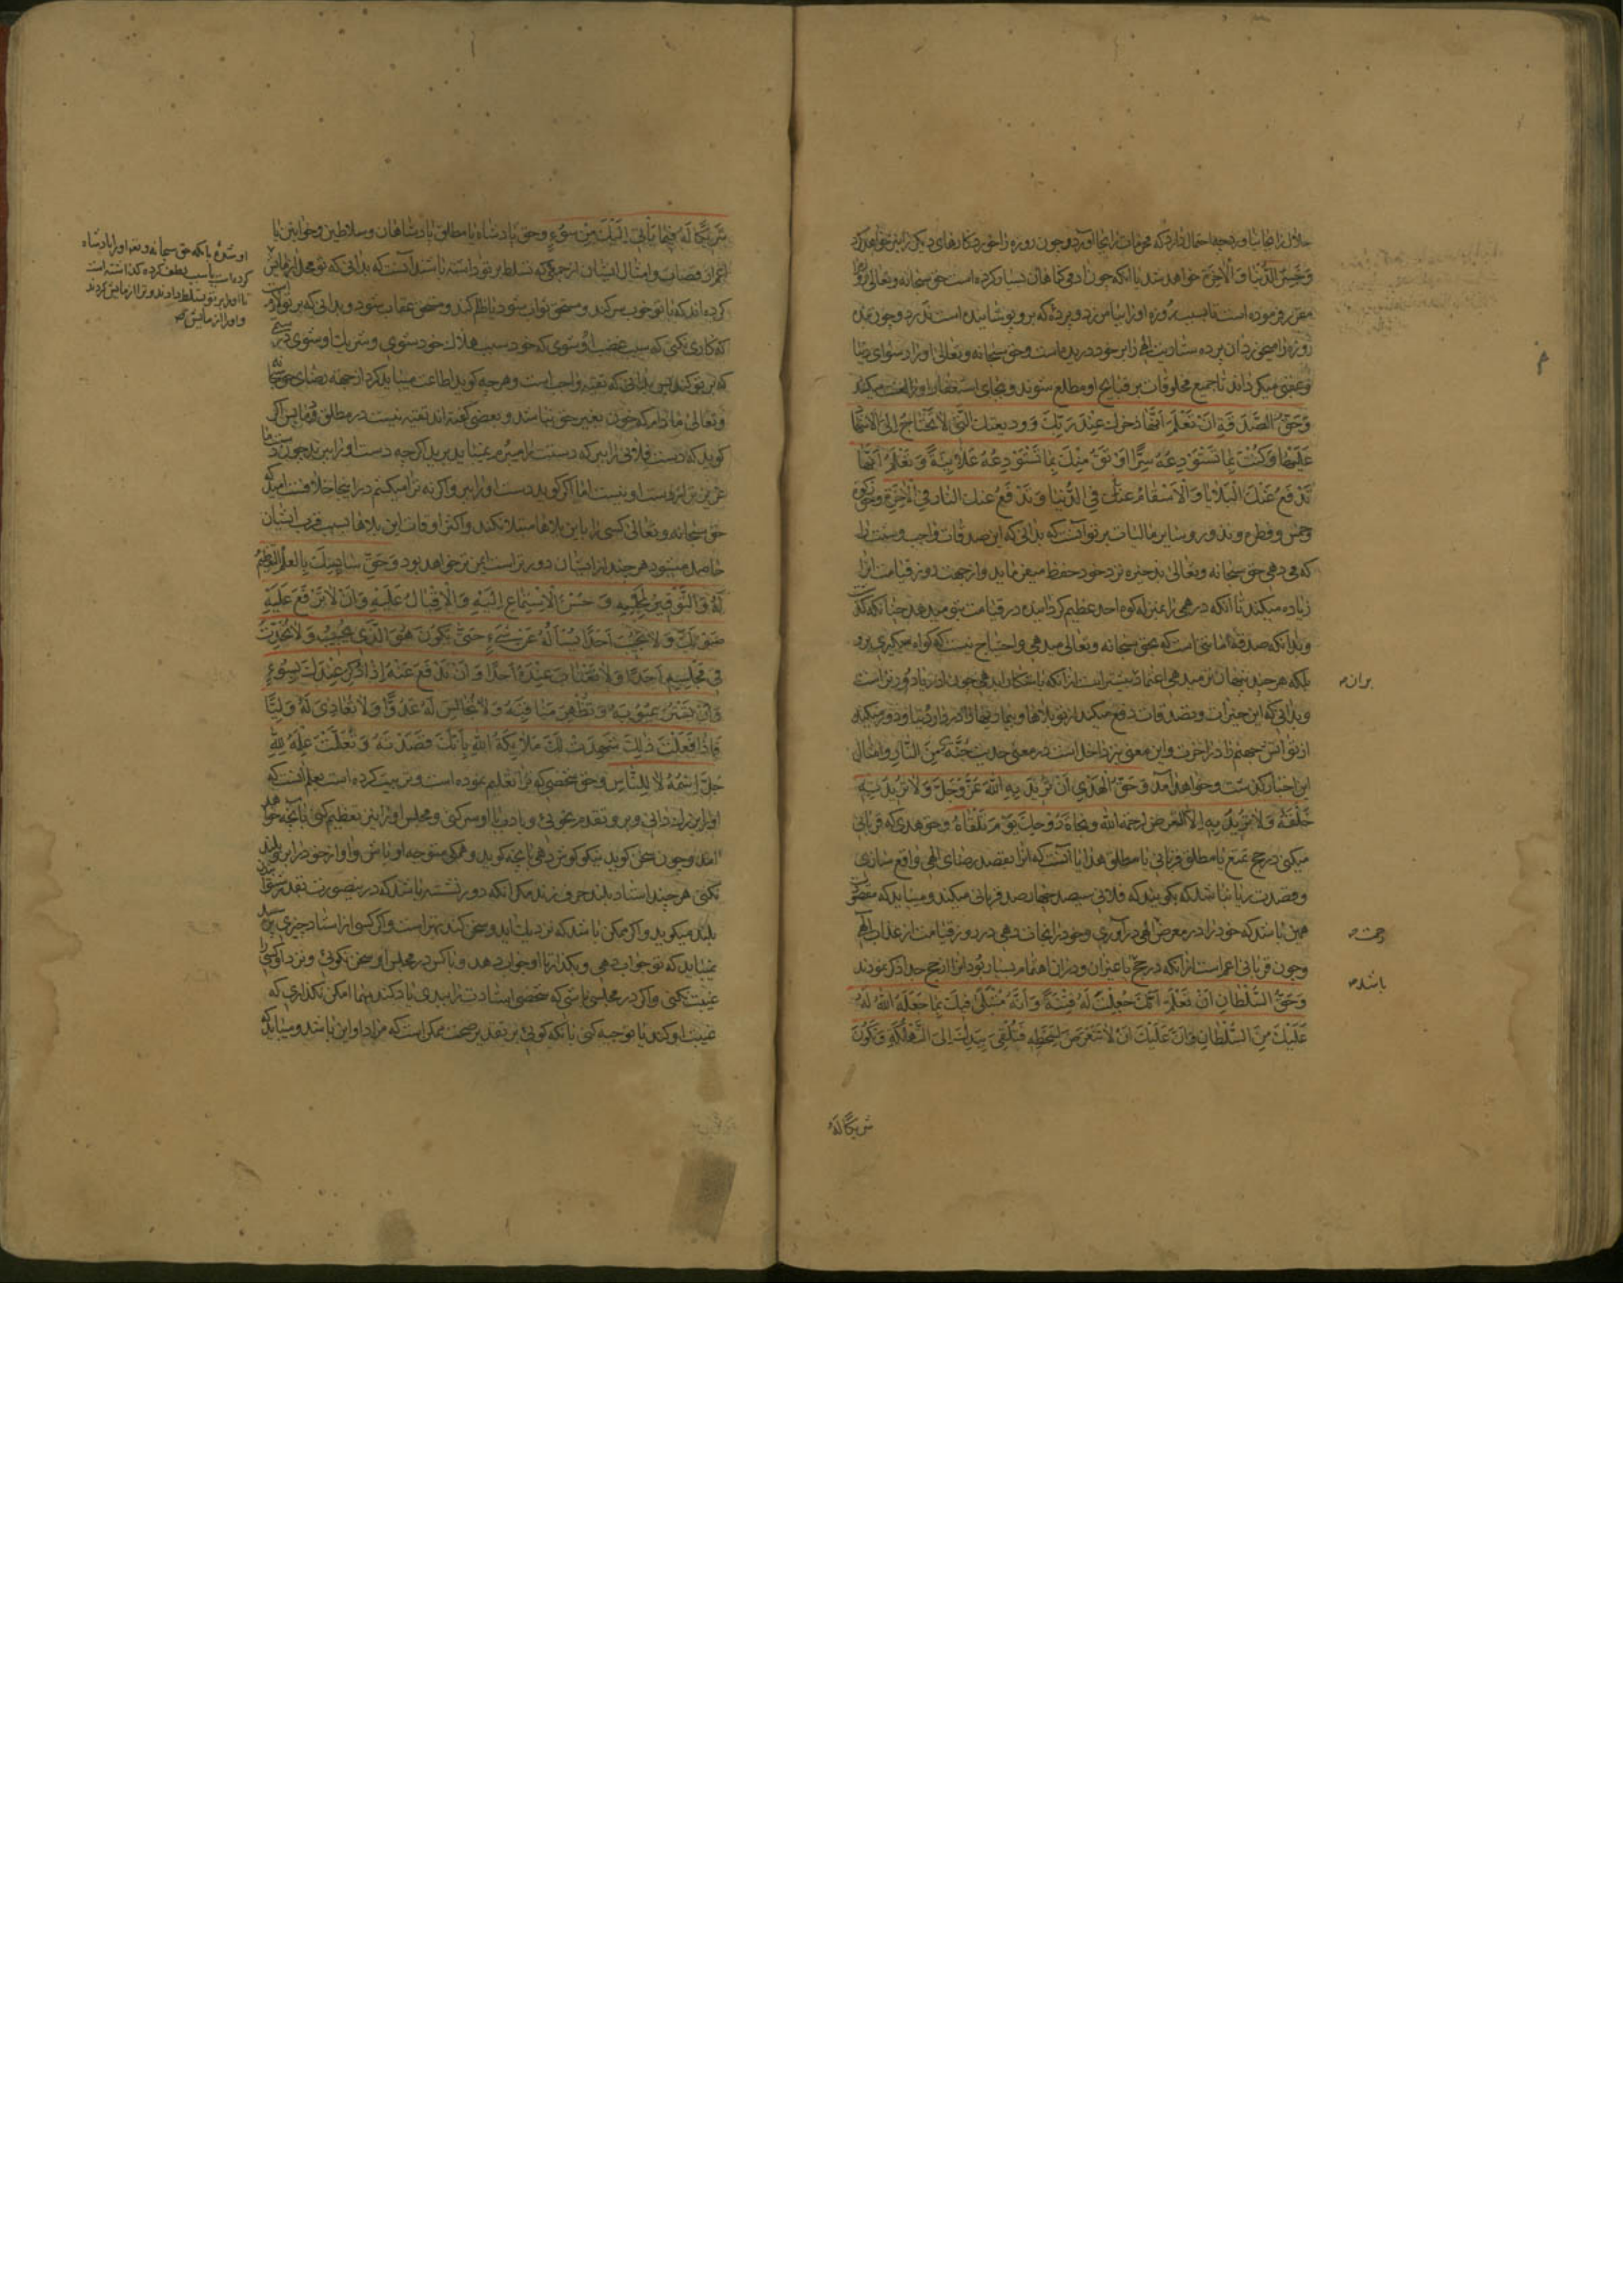 حلال را بجا نیاورد چه احتمال دارد که محرمات را بجا آورد و چون روزه را خورد کارهای دیکر را نیز خواهد کرد
وَ خَسِرَ الدُّنْیَا وَ الْآخِرَةَ خواهد شد یا آنکه چون آدمی کناهان بسیار کرده است حق سبحانه و تعالی روزه را
مقرر فرموده است تا بسبب روزه او را بیامرزد و پرده که برو پوشانیده است ندرد و چون بنده
روزه را میخورد آن پرده ستاریت الهی را بر خود دریده است و حق سبحانه و تعالی او را رسوای دنیا
و عقبی میکرداند تا جمیع مخلوقات بر قبایح او مطلع شوند و بجای استغفار او را لعنت میکنند
وَ حَقُّ الصَّدَقَةِ اَنْ تَعْلَمَ اَنَّهَا ذُخْرُكَ عِنْدَ رَبِّكَ وَ وَدیعَتُكَ الَّتی لَا تَحْتَاجُ اِلَی الْاِشْهَادِ
عَلَیْهَا وَ کُنْتَ بِمَا تَسْتَوْدِعُهُ سِرًّا اَوْثَقَ مِنْكَ بِمَا تَسْتَوْدِعُهُ عَلَانِیَةً وَ تَعْلَمُ اَنَّهَا
تَدْفَعُ عَنْكَ الْبَلَایَا وَ الْاَسْقَامَ عَنْكَ فِی الدُّنْیَا وَ تَدْفَعُ عَنْكَ النَّارَ فِی الْآخِرَةِ و حق زکوة
و خمس و فطره و نذور و سایر مالیات بر تو آنست که بدانی که این صدقات واجب و سنت را
که می دهی حق سبحانه و تعالی ذخیره نزد خود حفظ میفرماید و از جهت روز قیامت آن را
زیاده میکند تا آنکه درهمی را بمنزله کوه احد عظیم کردانیده در قیامت بتو میدهد چنانکه کذشت
و بدانکه صدقه امانتی است که بحق سبحانه و تعالی میدهی و احتیاج نیست که کواه میکیری برو
بلکه هر چند پنهان تر میدهی اعتماد بیشتر است از آنکه باشکارا بدهی چون از ریا دورتر است
و بدانی که این خیرات و تصدقات دفع میکند از تو بلاها و بیماریها را در دار دنیا و دور میکند
از تو آتش جهنم را در آخرت و این معنی نیز داخل است در معنی حدیث جُنَّةٌ مِنَ النَّارِ و امثال
این اخبار کذشت و خواهد آمد وَ حَقُّ الْهَدْیِ اَنْ تُرِیدَ بِهِ اللّٰهَ عَزَّ وَ جَلَّ وَ لَا تُرِیدَ بِهِ
خَلْقَهُ وَ لَا تُرِیدَ بِهِ اِلَّا التَّعَرُّضَ لِرَحْمَةِ اللّٰهِ وَ نَجَاةَ رُوحِكَ یَوْمَ تَلْقَاهُ و حق هدی که قربانی
میکنی در حج تمتع یا مطلق قربانی یا مطلق هدایا آنست که آن را بقصد رضای الهی واقع سازی
و قصدت ریا نباشد که بکویند که فلانی سیصد چهارصد قربانی میکند و میباید که مقصودت
همین باشد که خود را در معرض الهی در آوری و خود را نجات دهی در روز قیامت از عذاب الهی
و چون قربانی اعم است از آنکه در حج یا غیر آن و در آن اهتمام بسیار بود آن را از حج جدا ذکر نمودند
وَ حَقُّ السُّلْطَانِ اَنْ تَعْلَمَ اَنَّكَ جُعِلْتَ لَهُ فِتْنَةً وَ اَنَّهُ مُبْتَلًی فِیكَ بِمَا جَعَلَهُ اللّٰهُ لَهُ
عَلَیْكَ مِنَ السُّلْطَانِ وَ اَنَّ عَلَیْكَ اَنْ لَا تَتَعَرَّضَ لِسَخَطِهِ فَتُلْقِیَ بِیَدِكَ اِلَی التَّهْلُکَةِ وَ تَکُونَ
شریکًا لَهُ
بر آن
رحمت
باشد
شَرِیکًا لَهُ فِیمَا یَأْتِی اِلَیْكَ مِنْ سُوءٍ و حق پادشاه یا مطلق پادشاهان و سلاطین و خوانین یا
اعم از قضات و امثال ایشان از جمعی که تسلط بر تو داشته باشند آنست که بدانی که تو محل آزمایش
کرده اند که با تو خوب سر کند و مستحق ثواب شود یا ظلم کند و مستحق عقاب شود و بدانی که بر تو لازم است
که کاری نکنی که سبب غضب او شوی که خود سبب هلاك خود شوی و شریك او شوی در ستمی
که بر تو کند پس بدانی که تقیه واجب است و هر چه کوید اطاعت میباید کرد از جهة رضای حق سبحانه
و تعالی مادام که خون بغیر حق نباشد و بعضی کفته اند تقیه نیست در مطلق دماء پس اکر
کوید که دست فلانی را ببر که دستت را میبرم نمیباید برید اکرچه دست او را ببرند چون دست ما
عزیزتر از دست او نیست اما اکر کوید دست او را ببر و اکر نه ترا میکشم در اینجا خلافست امید که
حق سبحانه و تعالی کسی را باین بلاها مبتلا نکند و اکثر اوقات این بلاها بسبب قرب ایشان
حاصل میشود هر چند از ایشان دورتر است ایمن تر خواهد بود وَ حَقُّ سَایِسِكَ بِالْعِلْمِ التَّعْظِیمُ
لَهُ وَ التَّوْقِیرُ لِمَجْلِسِهِ وَ حُسْنُ الْاِسْتِمَاعِ اِلَیْهِ وَ الْاِقْبَالُ عَلَیْهِ وَ اَنْ لَا تَرْفَعَ عَلَیْهِ
صَوْتَكَ وَ لَا تُجِیبَ اَحَدًا یَسْأَلُهُ عَنْ شَیْءٍ حَتَّی یَکُونَ هُوَ الَّذِی یُجِیبُ وَ لَا تُحَدِّثَ
فِی مَجْلِسِهِ اَحَدًا وَ لَا تَغْتَابَ عِنْدَهُ اَحَدًا وَ اَنْ تَدْفَعَ عَنْهُ اِذَا ذُکِرَ عِنْدَكَ بِسُوءٍ
وَ اَنْ تَسْتُرَ عُیُوبَهُ وَ تُظْهِرَ مَنَاقِبَهُ وَ لَا تُجَالِسَ لَهُ عَدُوًّا وَ لَا تُعَادِیَ لَهُ وَلِیًّا
فَاِذَا فَعَلْتَ ذٰلِكَ شَهِدَتْ لَكَ مَلَائِکَةُ اللّٰهِ بِاَنَّكَ قَصَدْتَهُ وَ تَعَلَّمْتَ عِلْمَهُ لِلّٰهِ
جَلَّ اِسْمُهُ لَا لِلنَّاسِ و حق شخصی که ترا تعلیم نموده است و تربیت کرده است بعلم آنست که
او را بزرك دانی و برو تقدم نجوئی و بادب با او سر کنی و مجلس او را نیز تعظیم کنی تا آنچه خواهد
آمد و چون سخن کوید نیکو کوش دهی بآنچه کوید و همکی متوجه او باش و آواز خود را برو بلند
نکنی هر چند استاد بلند حرف زند مکر آنکه دور نشسته باشد که در ینصورت بقدر
بلند میکوید و اکر ممکن باشد که نزدیك آید و سخن کند بهتر است و اکر کسی از استاد چیزی پرسد
نمیباید که تو جواب دهی و بکذار تا او جواب دهد و با کس در مجلس او سخن نکوئی و نزد او کسی را
غیبت نکنی و اکر در مجلسی باشی که شخصی استادت را ببدی یاد کند مهما امکن نکذاری که
غیبت او کند یا توجیه کنی یا آنکه کوئی بر تقدیر صحت ممکن است که مراد او این باشد و میباید که
او شدۀ یا آنکه حق سبحانه و تعه او را پادشاه
کرده است یا سبب لطف کرده کذاشته است
تا او را بر تو تسلط دادند و ترا آزمایش کردند
و او را آزمایش